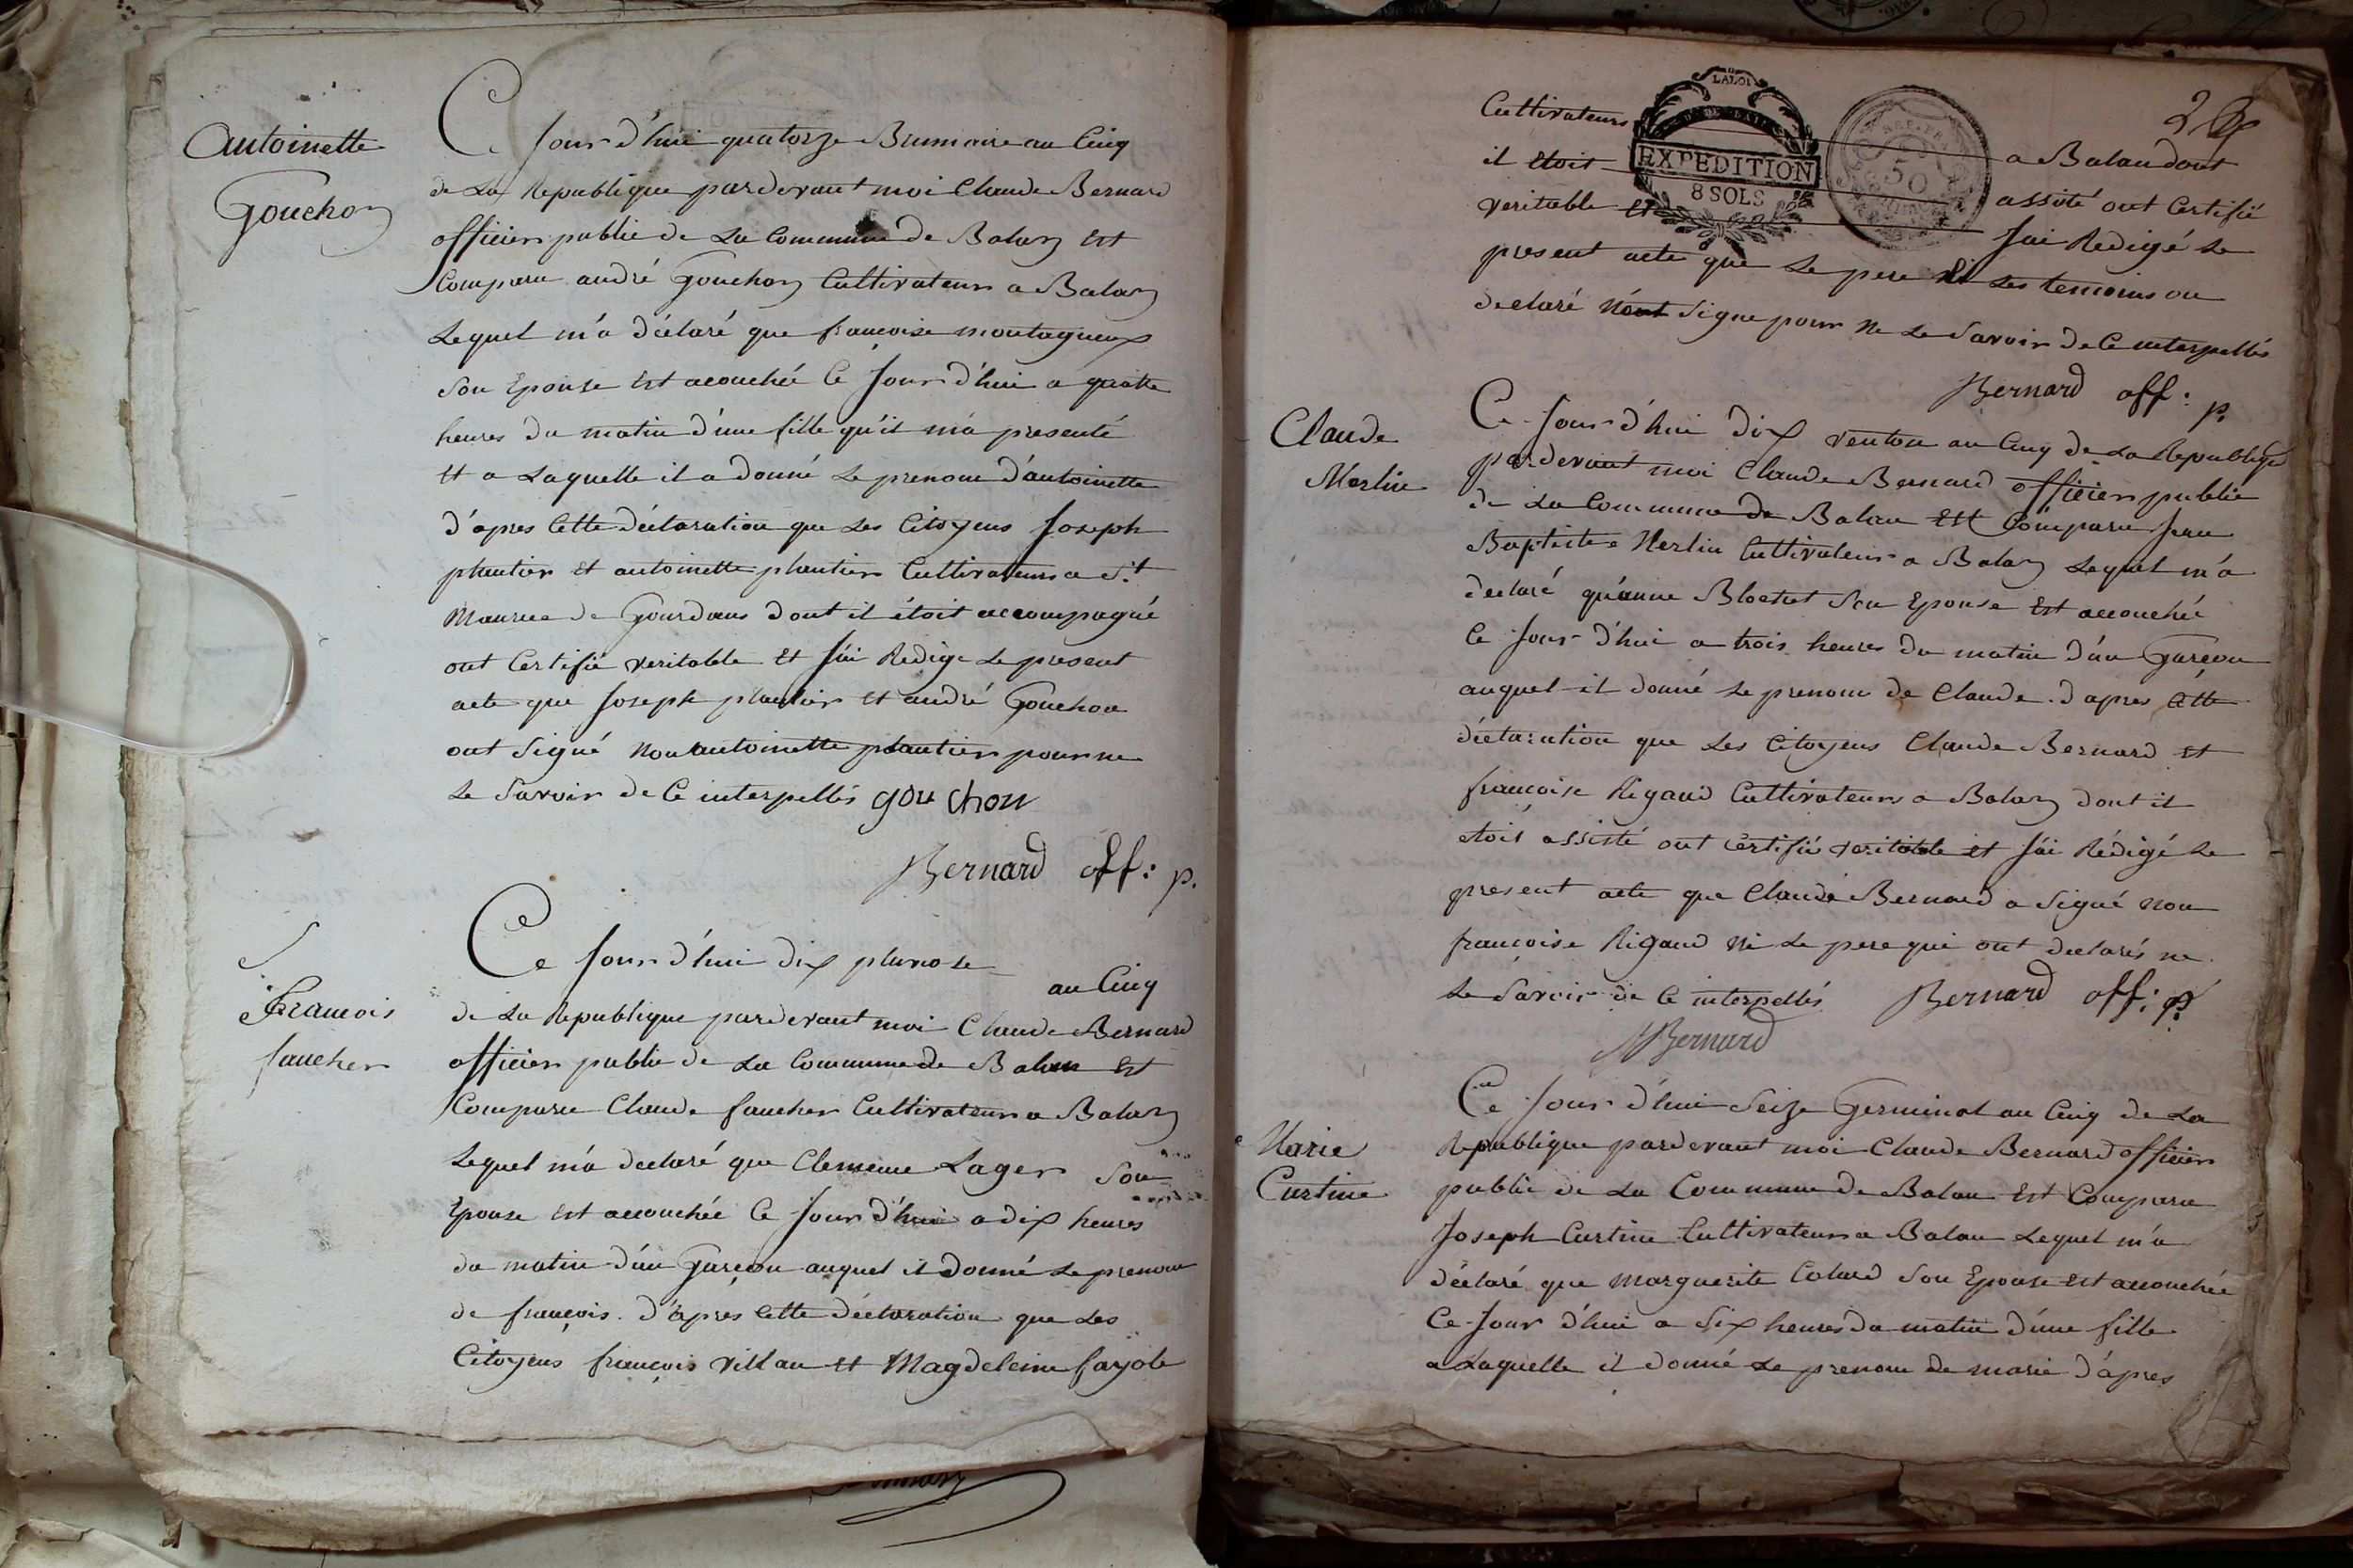 Antoinette
Gouchon
Ce Jour d'hui quatorze Brumaire an Cinq
de La Republique pardevant moi Claude Bernard
officier public de La Commune de Balan Est
Comparu andré Gouchon Cultivateur a Balan
Lequel m'a déclaré que francoise montagneux
Son Epouse Est acouchée Ce Jour d'hui a quatte
heures du matin d'une fille qu'il m'a presenté
Et a Laquelle il a donné Le prenom d'antoinette
d'apres Cette déclaration que Les Citoyens Joseph
plantier Et antoinette plantier Cultivateurs a St
Maurice de Gourdans dont il étoit accompagné
ont Certifié veritable Et J'ai Redigé Le present
acte que Joseph plantier Et andré Gouchon
ont Signé non antoinette plantier pour ne
Le Savoir de Ce interpellés gou chon
Bernard off: p.
Francois
faucher
Ce Jour d'hui dix pluviose
an Cinq
de La Republique pardevant moi Claude Bernard
officier public de La Commune de Balan Est
Comparu Claude faucher Cultivateur a Balan
Lequel m'a declaré que Clemence Lager Son
Epouse Est acouchée Ce Jour d'hui a dix heures
du matin d'un Garçon auquel il donné Le prenom
de françois. d'apres Cette déclaration que Les
Citoyens françois villan Et Magdeleine fayole
LA LOI
EXPEDITION
8 SOLS
50
Cultivateurs a Balan dont
il Etoit assité ont Certifié
veritable Et J'ai Redigé Le
present acte que Le pere Ni Les temoins on
declaré N'ont Signe pour Ne Le Savoir de Ce interpellés
Bernard off: p.
Claude
Merlin
Ce Jour d'hui dix ventose an Cinq de La Republique
pardevant moi Claude Bernard officier public
de La Commune de Balan Est Comparu Jean
Baptiste Merlin Cultivateur a Balan Lequel m'a
declaré qu'anne Son Epouse Est acouchée
Ce Jour d'hui a trois heures du matin d'un Garçon
auquel il donné Le prenom de Claude. d'apres Cette
déclaration que Les Citoyens Claude Bernard Et
françoise Rigaud Cultivateurs a Balan dont il
etoit assisté ont Certifié veritable et J'ai Rédigé Le
present acte que Claude Bernard a Signé non
françoise Rigaud Ni Le pere qui ont declarés ne
Le Savoir de Ce interpellés Bernard off: p.
Bernard
Marie
Curtine
Ce Jour d'hui Seize Germinal an Cinq de La
Republique pardevant moi Claude Bernard officier
public de La Commune de Balan Est Comparu
Joseph Curtine Cultivateur a Balan Lequel m'a
déclaré que Marguerite Coland Son Epouse Est acouchée
Ce Jour d'hui a Six heures du matin d'une fille
a Laquelle il donné Le prenom de marie d'apres